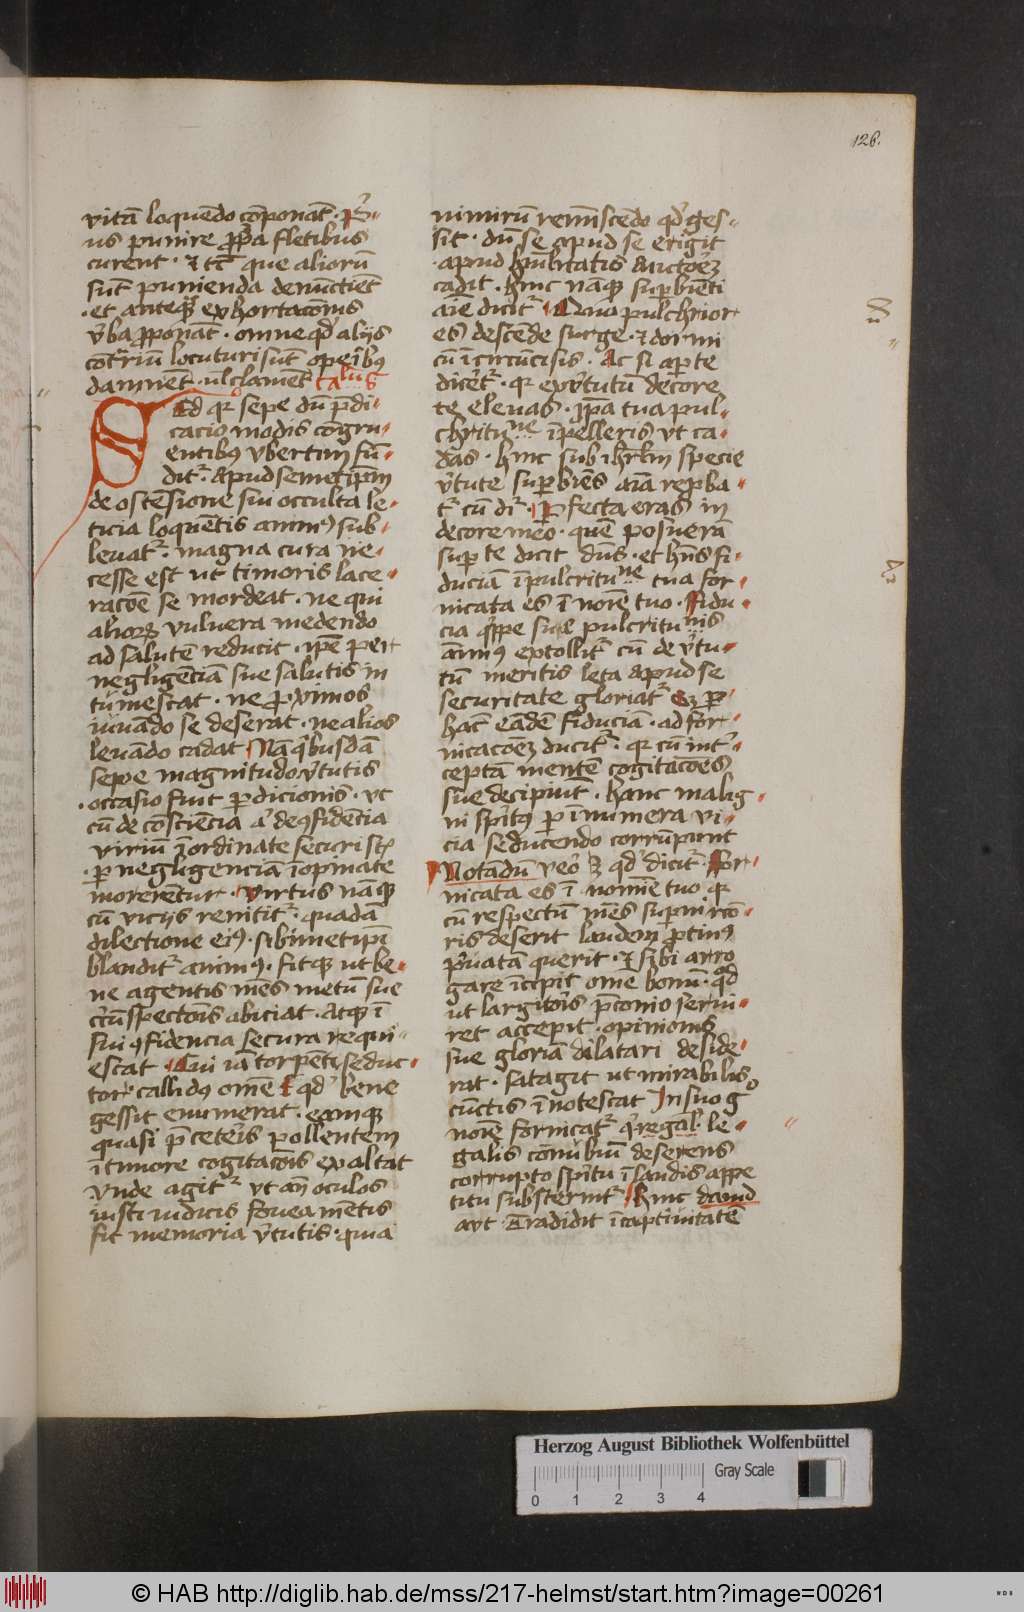 126.
vitā loquēdo cōponāt · Pri⸗
us punire ꝓp̄a fletibus
curent · ⁊ tūc que alioꝝ
sūt punienda denūctiēt
· et anteqꝫ exhortacōnis
v̓ba ꝓponāt · omne qd̓ alijs
locuturi sūt opeībꝫ
clament
Sed qꝛ sepe dū p̄di⸗
cacio modis cōgru⸗
entibꝰ vbertim fū⸗
ditᷣ · apud semetip̄m
de ostēsione sui occulta le⸗
ticia loquētis animꝰ sub⸗
leuatᷣ · magna cura ne⸗
cesse est ut timoris lace⸗
racōe se mordeat · ne qui
alioꝝ vulnera medendo
ad salutē reducit · ip̄e per
negligēciā sue salutis in
tumescat · ne ꝓximos
iuuādo se deserat · ne alios
leuādo cadat Nā qͥbusdā
sepe magnitudo v̓tutis
· occasio fuit ꝑdicionis · ut
cū de cōsciēcia
viriū īordinate securi st̄
· ꝑ negligenciam īopinate
morerētur · virtus nāqꝫ
cū vicijs renititᷣ · quadā
dilectione eiꝰ · sibimetip̄i
blanditᷣ animꝰ · fitqꝫ ut be⸗
ne agentis mēs metū sue
cͥcūspectōis abiciat · Atqꝫ ī
sui ꝯfidencia secura requi⸗
escat · Cui iā torpēti seduc⸗
tor callidꝰ om̄e qd̓ bene
gessit enumerat · eamqꝫ
quasi p̄ ceteris pollentem
ī timore cogitacōis exaltat
Vnde agitᷣ vt an̄ oculos
iusti iudicis fouea mētis
fit memoria v̓tutis · quia
nimiꝝ reminiscēdo qd̓ ges⸗
sit · dū se apud se erigit
· apud humilitatis auctorē
cadit · hinc nāqꝫ suꝑbiēti
aīe dicitᷣ Quo pulchrior
es descēde surge · ⁊ dormi
cū īcircūcisis · Ac si aꝑte
dicetᷣ · qꝛ ex v̓tutū decore
te eleuas · ip̄a tua pul⸗
chritudine īpelleris vt ca⸗
das · hinc sub ihrlm specie
v̓tute suꝑbiēs aīa reproba⸗
tᷣ cū dr̄ · Perfecta eras in
decore meo · quē posuerā
suꝑ te dicit dn̄s · et hn̄s fi⸗
duciā ī pulcritudine tua for⸗
nicata es ī noīe tuo · Fidu⸗
cia qͥppe sue pulcritudinis
animꝰ extollitᷣ cū de v̓tu⸗
tū meritis leta apud se
securitate gloriatᷣ Sꝫ ꝑ
hāc eādē fiduciā · ad for⸗
nicacōeꝫ ducitᷣ · qꝛ cū int̓⸗
ceptā mentē cogitacōes
sue decipiūt · hanc malig⸗
ni sp̄itꝰ ꝑ īnumera vi⸗
cia seducendo corrūpunt
Notādū vero ꝫ qd̓ dicitᷣ · For⸗
nicata es ī nomīe tuo qꝛ
cū respectū mēs suꝑni rec⸗
toris deserit laudem ꝓtinꝰ
pͥuatā querit · ⁊ sibi arro
gare īcipit om̄e bonū · qd̓
ut largitoris p̄conio serui⸗
ret accepit · opinionis
sue gloriā dilatari deside⸗
rat · satagit ut mirabilis
cūctis īnotescat In suo g
noīe fornicatᷣ q̄ regal · le⸗
galis cōnubiū deserens
corrupto sp̄itu ī laudis appe
titu substernitᷣ hinc dauid
ayt · Tradidit ī captiuitatē
Herzog August Bibliothek Wolfenbüttel
Gray Scale
0 1 2 3 4
© HAB http://diglib.hab.de/mss/217-helmst/start.htm?image=00261